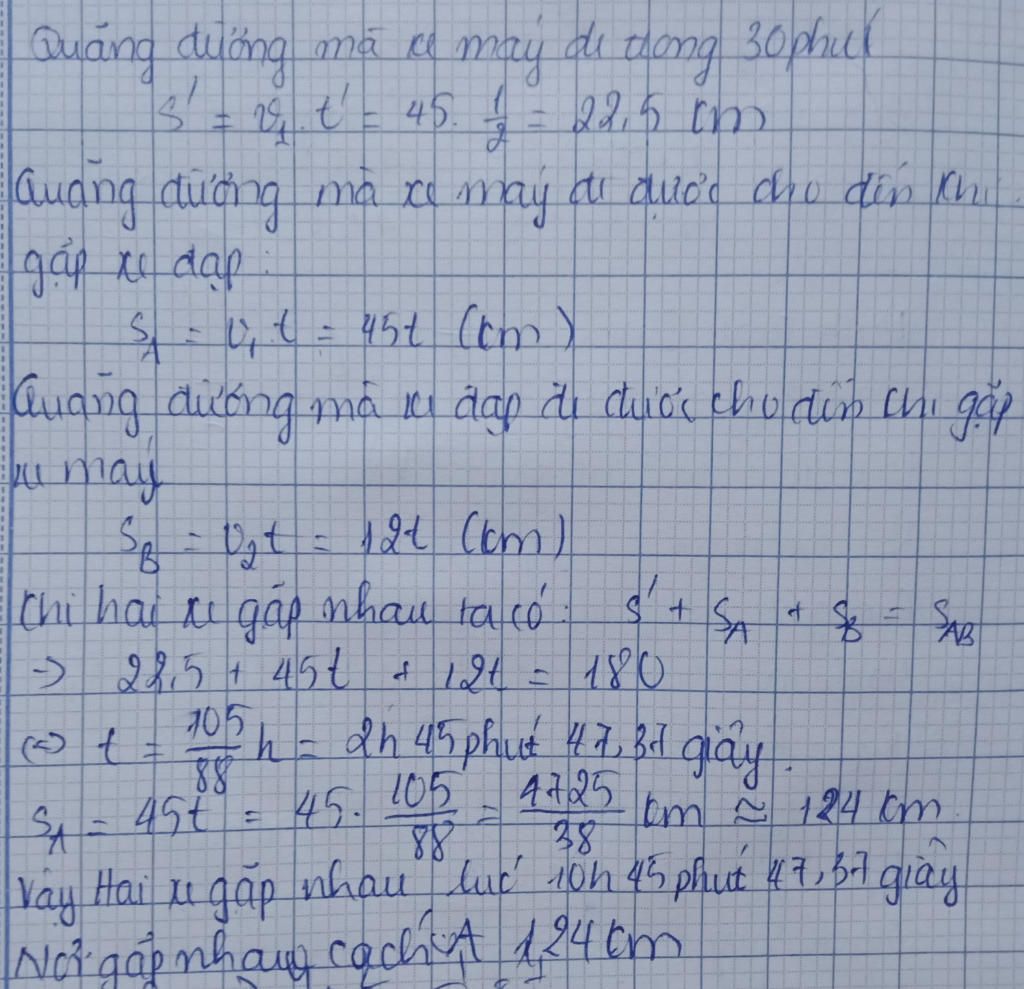 Quãng đường mà xe máy đi trong 30 phút
S' = v₁. t' = 45. 1/2 = 22,5 km
Quãng đường mà xe máy đi được cho đến khi
gặp xe đạp:
S_A = v₁.t = 45t (km)
Quãng đường mà xe đạp đi được cho đến khi gặp
xe máy
S_B = v₂t = 12t (km)
Khi hai xe gặp nhau ta có: S' + S_A + S_B = S_AB
→ 22,5 + 45t + 12t = 180
⇔ t = 105/38 h = 2h 45 phút 47,37 giây.
S_A = 45t = 45. 105/38 = 4725/38 km ≈ 124 km
Vậy Hai xe gặp nhau lúc 10h 45 phút 47,37 giây
Nơi gặp nhau cách A 124 km